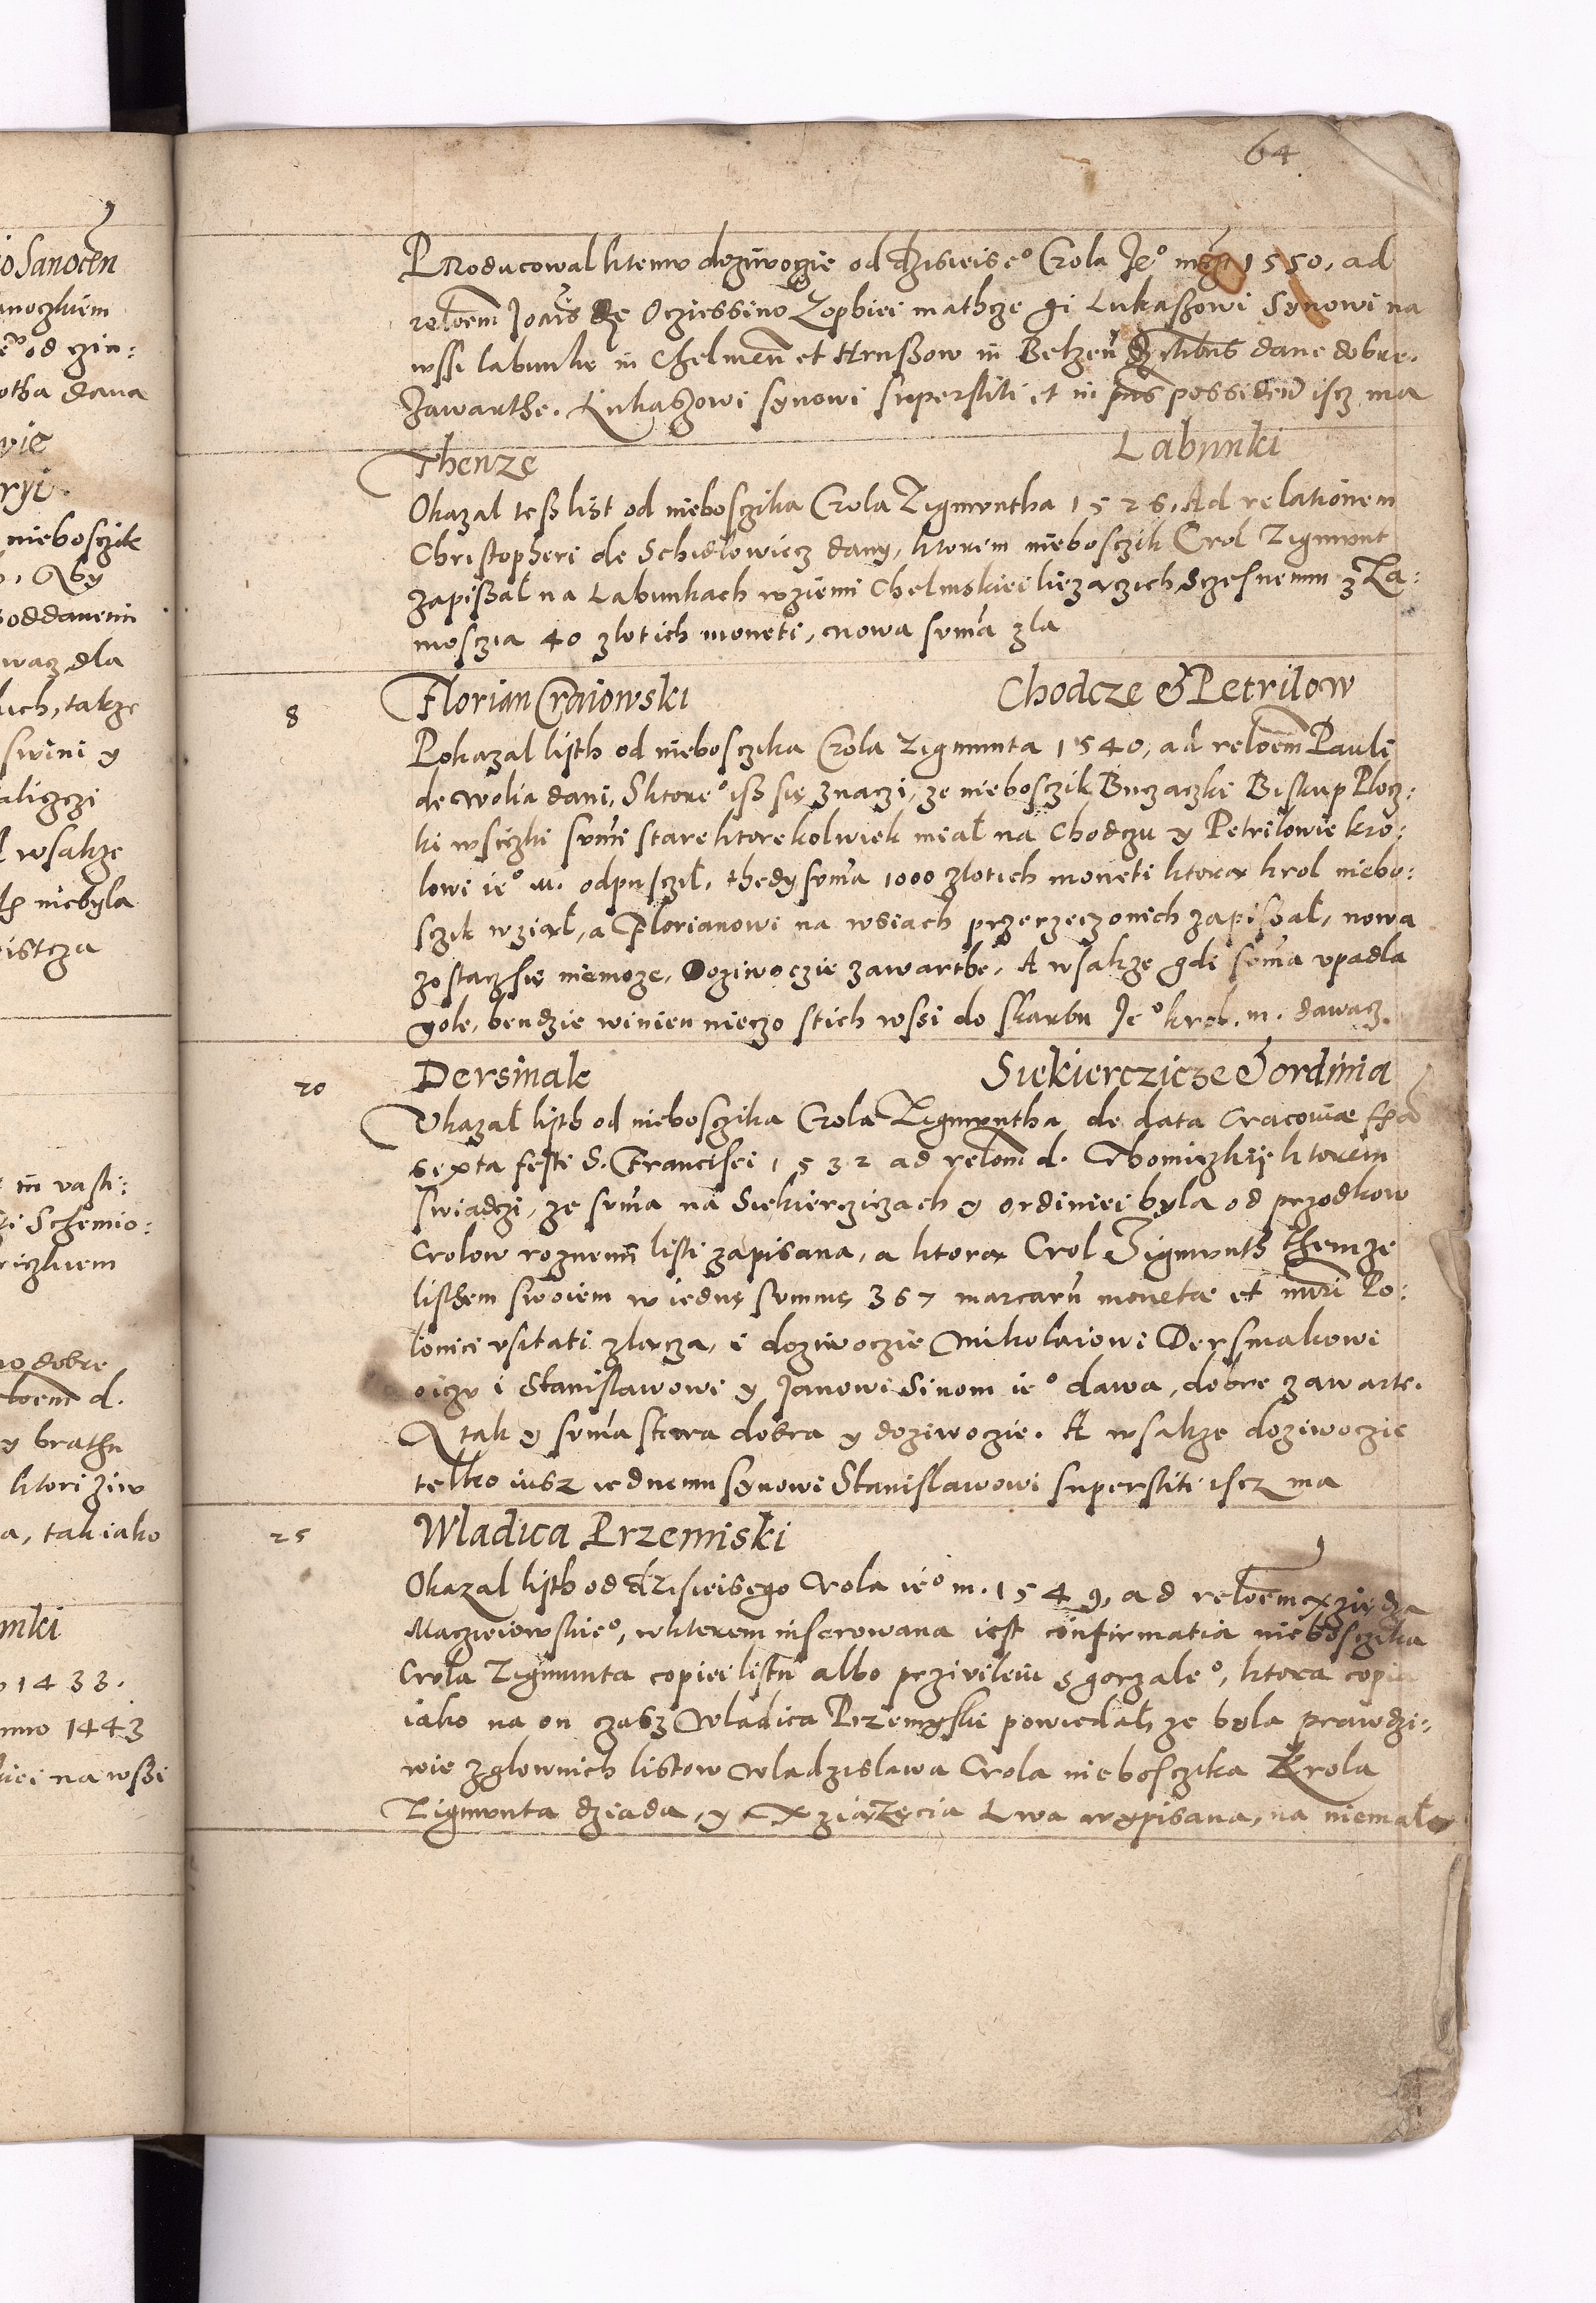 64
Producowal ktemv dozÿwoczie od dzisieis e° Crola Je° 1550, ad
reloem Joais de Ocziessino Zophiei mathcze gi Lukaßowi Synowi na
wssi labunke in Chelmen et Hrußow in Belzen dane dobre.
Zawarthe. Lukaszowi synowi superstiti et in pns possiden iscz ma
Thenze Labunki
Okazal teß list od nieboszika Crola Zigmvntha 1526, Ad relationem
Christopheri de Schidlowiecz dany, ktorem nieboszik Crol Zigmvnt
zapißał na Labunkach wziemi Chelmskiei liezączich Sczesnemu z Za:
moszia 40 zlotich moneti, nowa sum̃a zla
8 Florian Craiowski Chodcze & Petrilow
Pokazal listh od nieboszika Crola Zigmunta 1540, ad reloem Pauli
de Wolia dani, Sktore° iß się znaczi, ze nieboszik Buczaczki Biskup Plocz:
ki wsiczki sum̃i stare ktorekolwiek miał na Chodczu y Petrilowie kro:
lowi ie° m. odpuscził, thedy sum̃a 1000 złotich moneti ktorą krol niebo:
szik wziął, a Florianowi na wsiach przerzeczonich zapißał, nowa
zostacz się niemoze, Doziwoczie zawarthe, A wsakze gdi sum̃a vpadla
gole, bendzie winien nieczo stich wssi do Skarbu Je° krol. m. dawacz.
20 Dersniak Siekierczicze & ordinia
Vkazał listh od nieboszika Crola Zigmvntha de data Cracoviæ fẽa
sexta festi S. Francisci 1532 ad relom d. Thomiczkii ktorem
swiadczi, ze sum̃a na Siekierziczach y ordiniei byla od przodkow
Crolow roznemi listi zapisana, a ktorą Crol Zigmvnth themze
listhem swoiem w iednę summę 367 marcarũ monetæ et nũri Po:
lonici vsitati złącza, i doziwoczie Mikolaiowi Dersniakowi
oiczv i Stanislawowi y Janowi Sinom ie° dawa, dobre zawarte.
A tak y sum̃a stara dobra y doziwoczie. A wsakze doziwoczie
telko iusz iednemu synowi Stanislawowi superstiti iscz ma
25 Wladica Przemiski
Okazal listh od dzisieisego Crola ie° m. 1549, ad reloem xziędza
Macziejowskie°, wktorem inserowana iest confirmatia nieboszika
Crola Zigmunta copiei listu albo przivileiu sgorzale°, ktora copia
iako na on czasz Wladica Przemyski powiedał, ze byla prawdzi:
wie zglownich listow Wladzislawa Crola nieboszika Krola
Zigmvnta dziada, y Xziązęcia Lwa wypisana, na niemałą